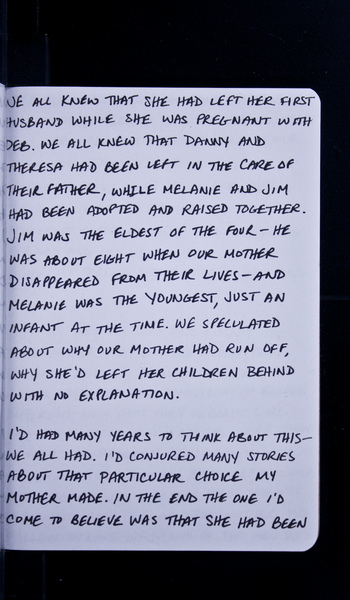 WE ALL KNEW THAT SHE HAD LEFT HER FIRST
HUSBAND WHILE SHE WAS PREGNANT WITH
DEB. WE ALL KNEW THAT DANNY AND
THERESA HAD BEEN LEFT IN THE CARE OF
THEIR FATHER, WHILE MELANIE AND JIM
HAD BEEN ADOPTED AND RAISED TOGETHER.
JIM WAS THE ELDEST OF THE FOUR—HE
WAS ABOUT EIGHT WHEN OUR MOTHER
DISAPPEARED FROM THEIR LIVES—AND
MELANIE WAS THE YOUNGEST, JUST AN
INFANT AT THE TIME. WE SPECULATED
ABOUT WHY OUR MOTHER HAD RUN OFF,
WHY SHE'D LEFT HER CHILDREN BEHIND
WITH NO EXPLANATION.
I'D HAD MANY YEARS TO THINK ABOUT THIS—
WE ALL HAD. I'D CONJURED MANY STORIES
ABOUT THAT PARTICULAR CHOICE MY
MOTHER MADE. IN THE END THE ONE I'D
COME TO BELIEVE WAS THAT SHE HAD BEEN